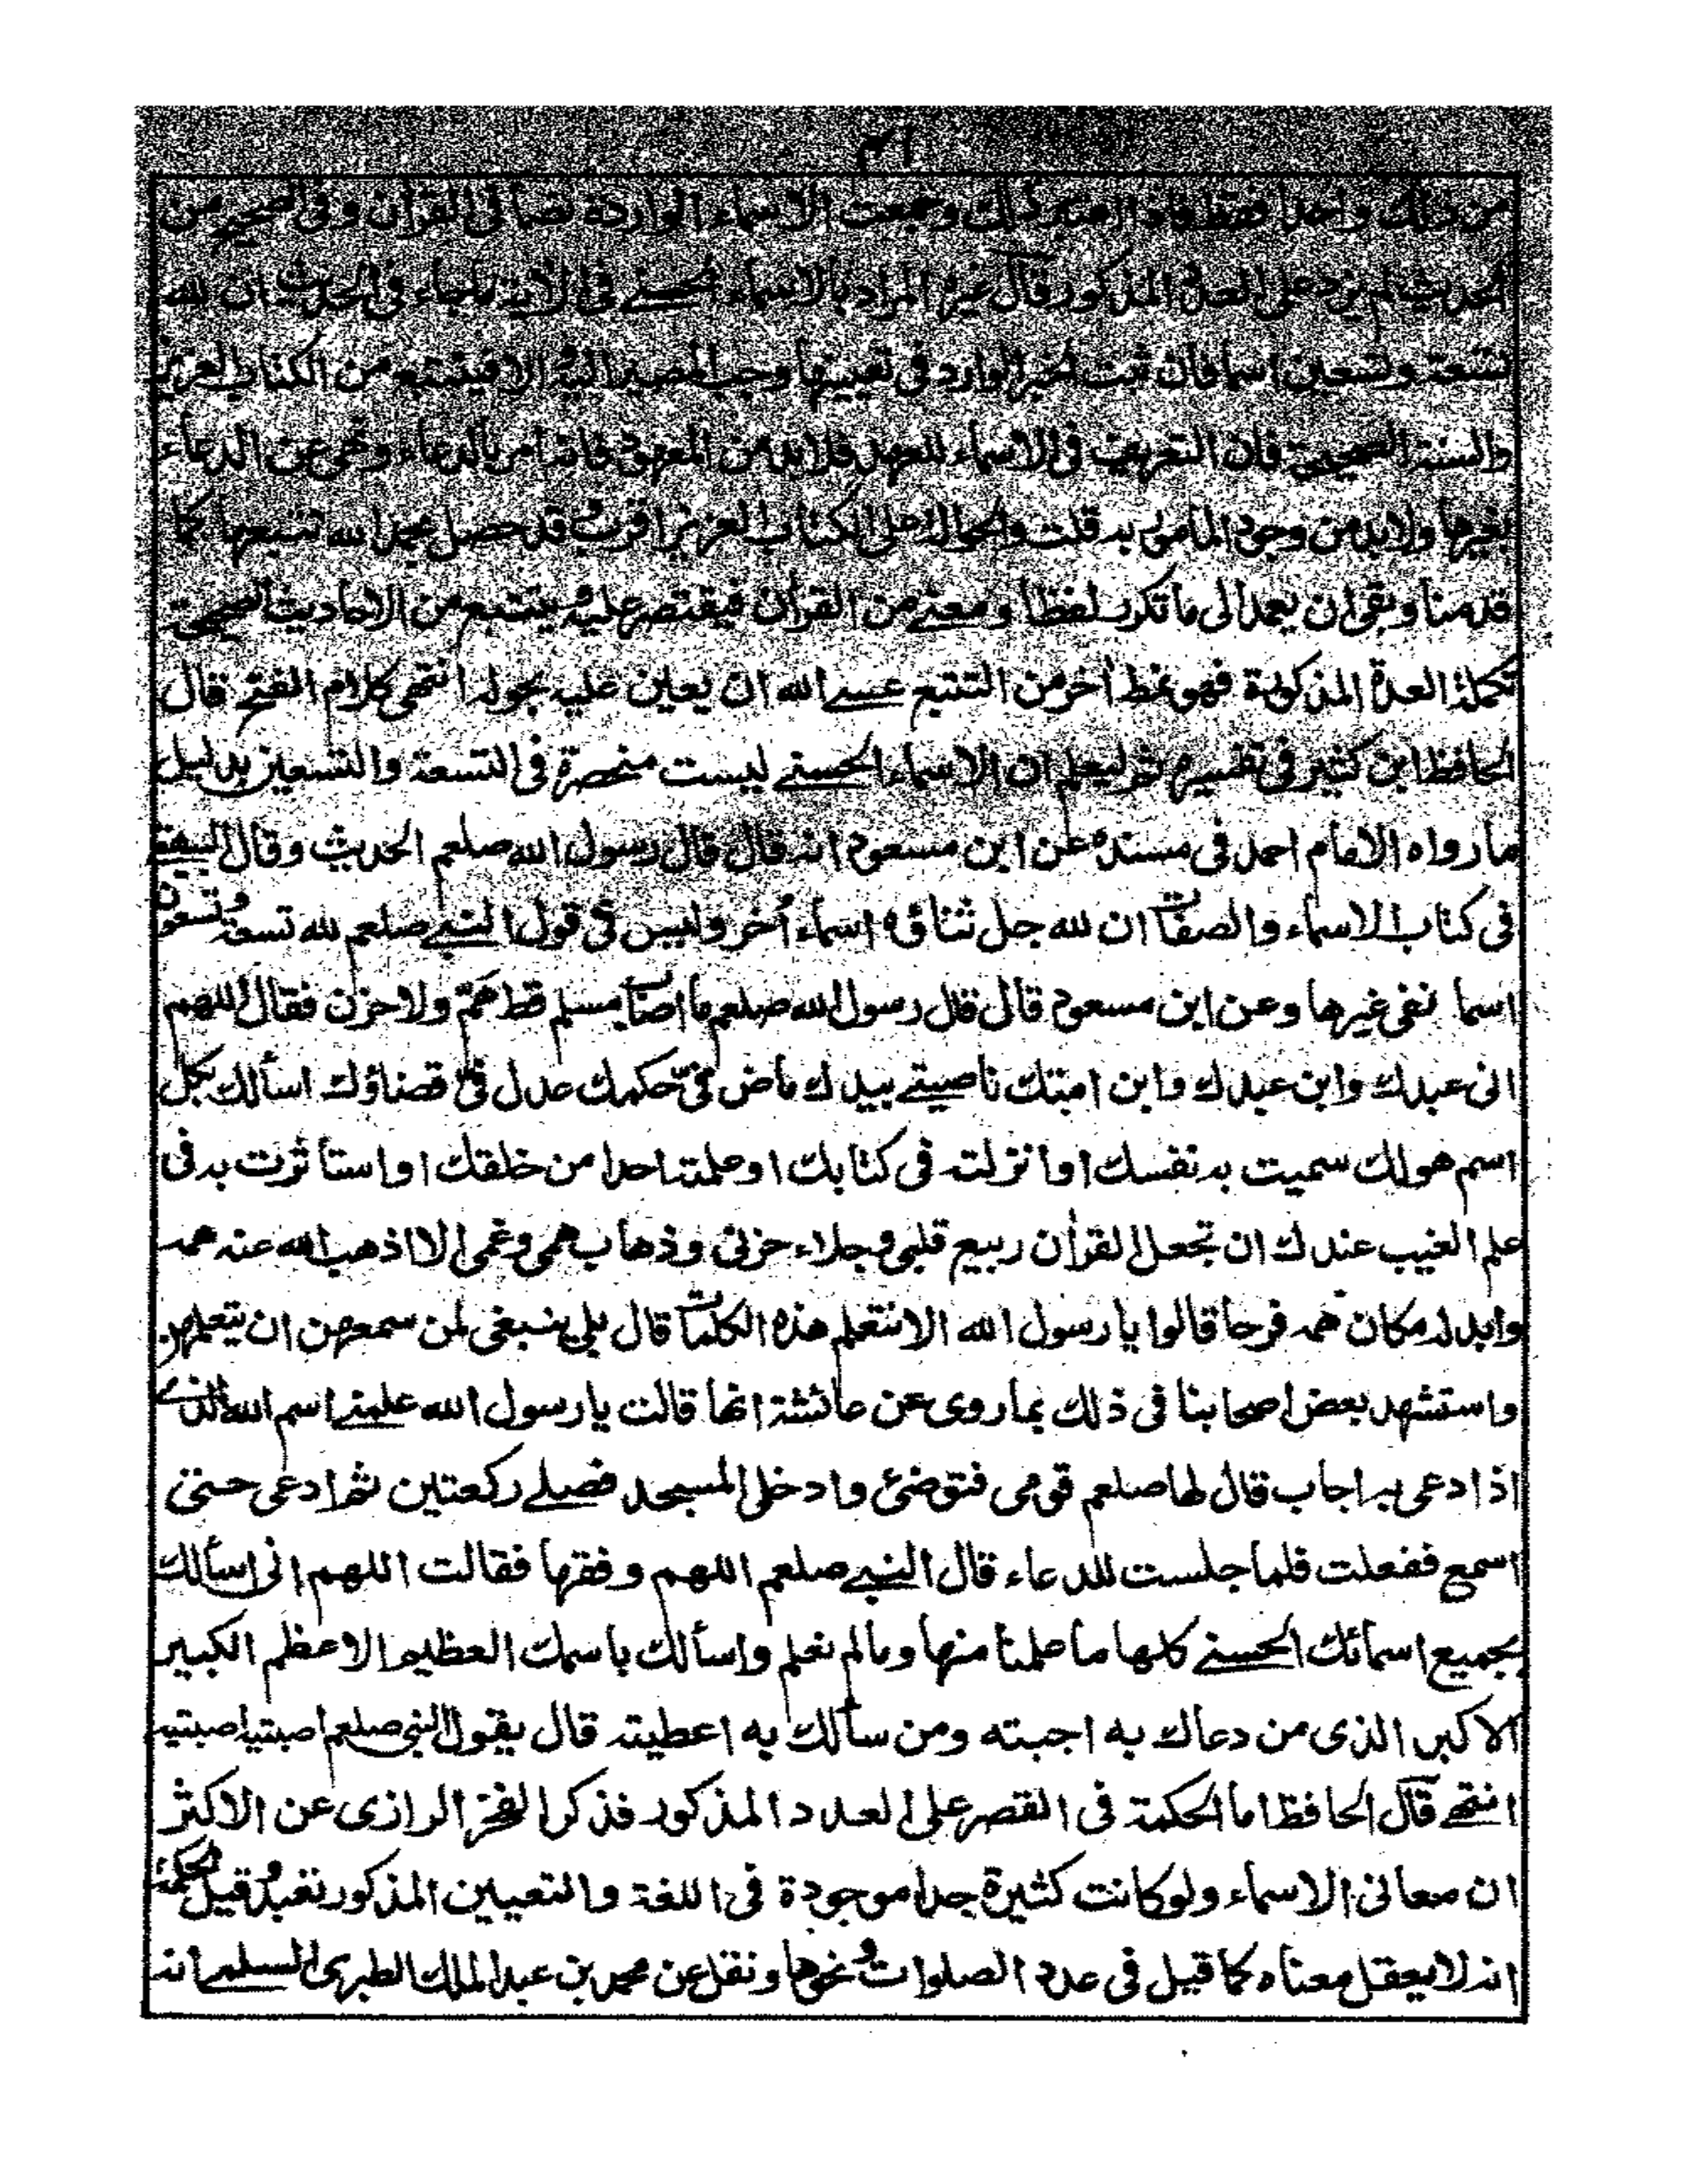 ٣١
من ذلك واحدا فقط فاذا اعتبر ذلك وجمعت الاسماء الواردة نصا فى القرآن وفى الصحيح من
الحديث لم يزد على العدد المذكور وقال غيره المراد بالاسماء الحسنے فى الآية ماجاء فى الحديث ان لله
تسعة وتسعين اسما فان ثبت الخبر الوارد فى تعيينها وجب المصير اليه والا فيتتبع من الكتاب العزيز
والسنة الصحيحة فان التعريف فى الاسماء للعهد فلابد من المعهود فانه امر بالدعاء ونهى عن الدعاء
بغيرها ولابد من وجود المامور به قلت والحوالة على الكتاب العزيز اقرب وقد حصل بحمد الله تتبعها كما
قدمنا وبقى ان يعمد الى ما تكرر لفظا ومعنے من القرآن فيقتصر عليه ويتتبع من الاحاديث الصحيحة
تكملة العدة المذكورة فهو نمط آخر من التتبع عسے الله ان يعين عليه بحوله انتهى كلام الفتح قال
الحافظ ابن كثير فى تفسيره ثم ليعلم ان الاسماء الحسنے ليست منحصرة فى التسعة والتسعين بدليل
ما رواه الامام احمد فى مسنده عن ابن مسعود انه قال قال رسول الله صلعم الحديث وقال البيهقے
فى كتاب الاسماء والصفات ان لله جل ثناؤه اسماء أخر وليس فى قول النبے صلعم لله تسعة وتسعون
اسما نفى غيرها وعن ابن مسعود قال قال رسول الله صلعم ما اصاب مسلم قط هَمّ ولا حزن فقال اللهم
انى عبدك وابن عبدك وابن امتك ناصيتے بيدك ماض فىّ حكمك عدل فىّ قضاؤك اسألك بكل
اسم هو لك سميت به نفسك او انزلته فى كتابك او علمته احدا من خلقك او استأثرت به فى
علم الغيب عندك ان تجعل القرآن ربيع قلبى وجلاء حزنى وذهاب همى وغمى الا اذهب الله عنه همه
وابدله مكان همه فرحا قالوا يا رسول الله الا نتعلم هذه الكلمات قال بلى ينبغى لمن سمعهن ان يتعلمهن
واستشهد بعض اصحابنا فى ذلك بما روى عن عائشة انها قالت يا رسول الله علمنے اسم الله الذے
اذا دعى به اجاب قال لها صلعم قومى فتوضئ وادخلى المسجد فصلے ركعتين ثم ادعى حتى
اسمع ففعلت فلما جلست للدعاء قال النبے صلعم اللهم وفقها فقالت اللهم انى اسألك
بجميع اسمائك الحسنے كلها ما علمنا منها وما لم نعلم واسألك باسمك العظيم الاعظم الكبير
الاكبر الذى من دعاك به اجبته ومن سألك به اعطيته قال يقول النبى صلعم اصبتيه اصبتيه
انتهے قال الحافظ اما الحكمة فى القصر على العدد المذكور فذكر الفخر الرازى عن الاكثر
ان معانى الاسماء ولو كانت كثيرة جدا موجودة فى اللغة والتعيين المذكور تعبد وقيل الحكمة
انه لا يعقل معناه كما قيل فى عدد الصلوات ونحوها ونقل عن محمد بن عبد الملك الطبرى السلمى انه